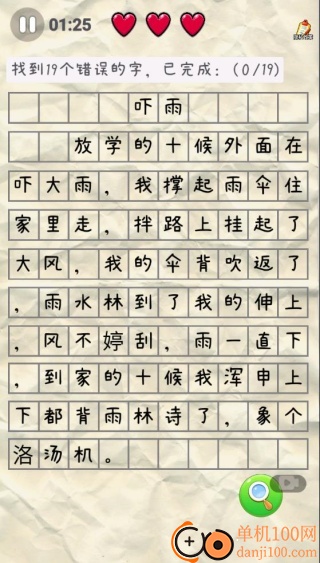 01:25
找到19个错误的字，已完成：(0/19)
吓雨
放学的十候外面在
吓大雨，我撑起雨伞住
家里走，拌路上挂起了
大风，我的伞背吹返了
，雨水林到了我的伸上
，风不婷刮，雨一直下
，到家的十候我浑申上
下都背雨林诗了，象个
洛汤机。
单机100网
danji100.com